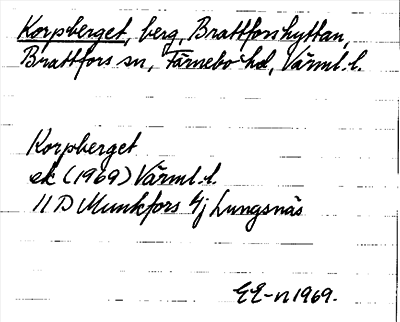 Korpberget, berg, Brattforshyttan,
Brattfors sn, Färnebo hd, Värml. l.
Korpberget
ek (1969) Värml. l.
11 D Munkfors 4j Lungsnäs
EE-n 1969.